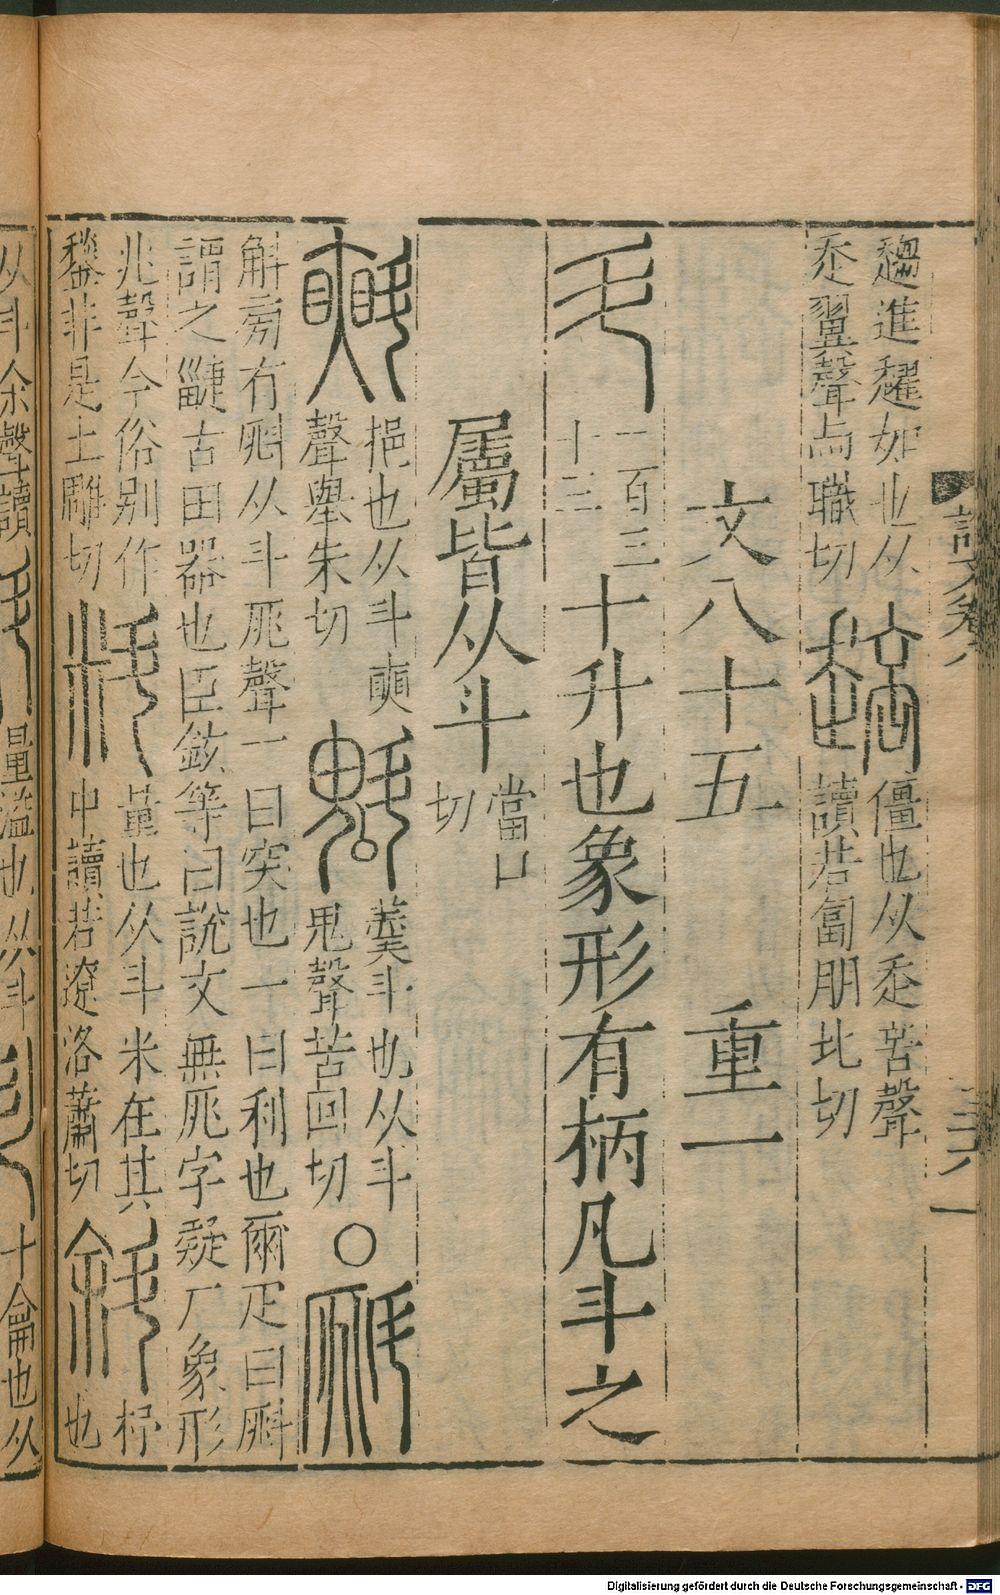 說文卷八 三六
趨進趯如也从
走翼聲与職切
僵也从走咅聲
讀若匐朋北切
文八十五 重一
斗 一百三十三 十升也象形有柄凡斗之
屬皆从斗 當口切
斞 挹也从斗臾聲舉朱切 魁 羹斗也从斗鬼聲苦回切 ○ 斛
斛旁有斛从斗庣聲一曰突也一曰利也爾疋曰斛
謂之疀古田器也臣鉉等曰說文無庣字疑厂象形
兆聲今俗別作鍫非是土雕切 料 量也从斗米在其中讀若遼洛蕭切 斜 杼也
从斗余聲讀 量溢也从斗 十龠也从
Digitalisierung gefördert durch die Deutsche Forschungsgemeinschaft - DFG